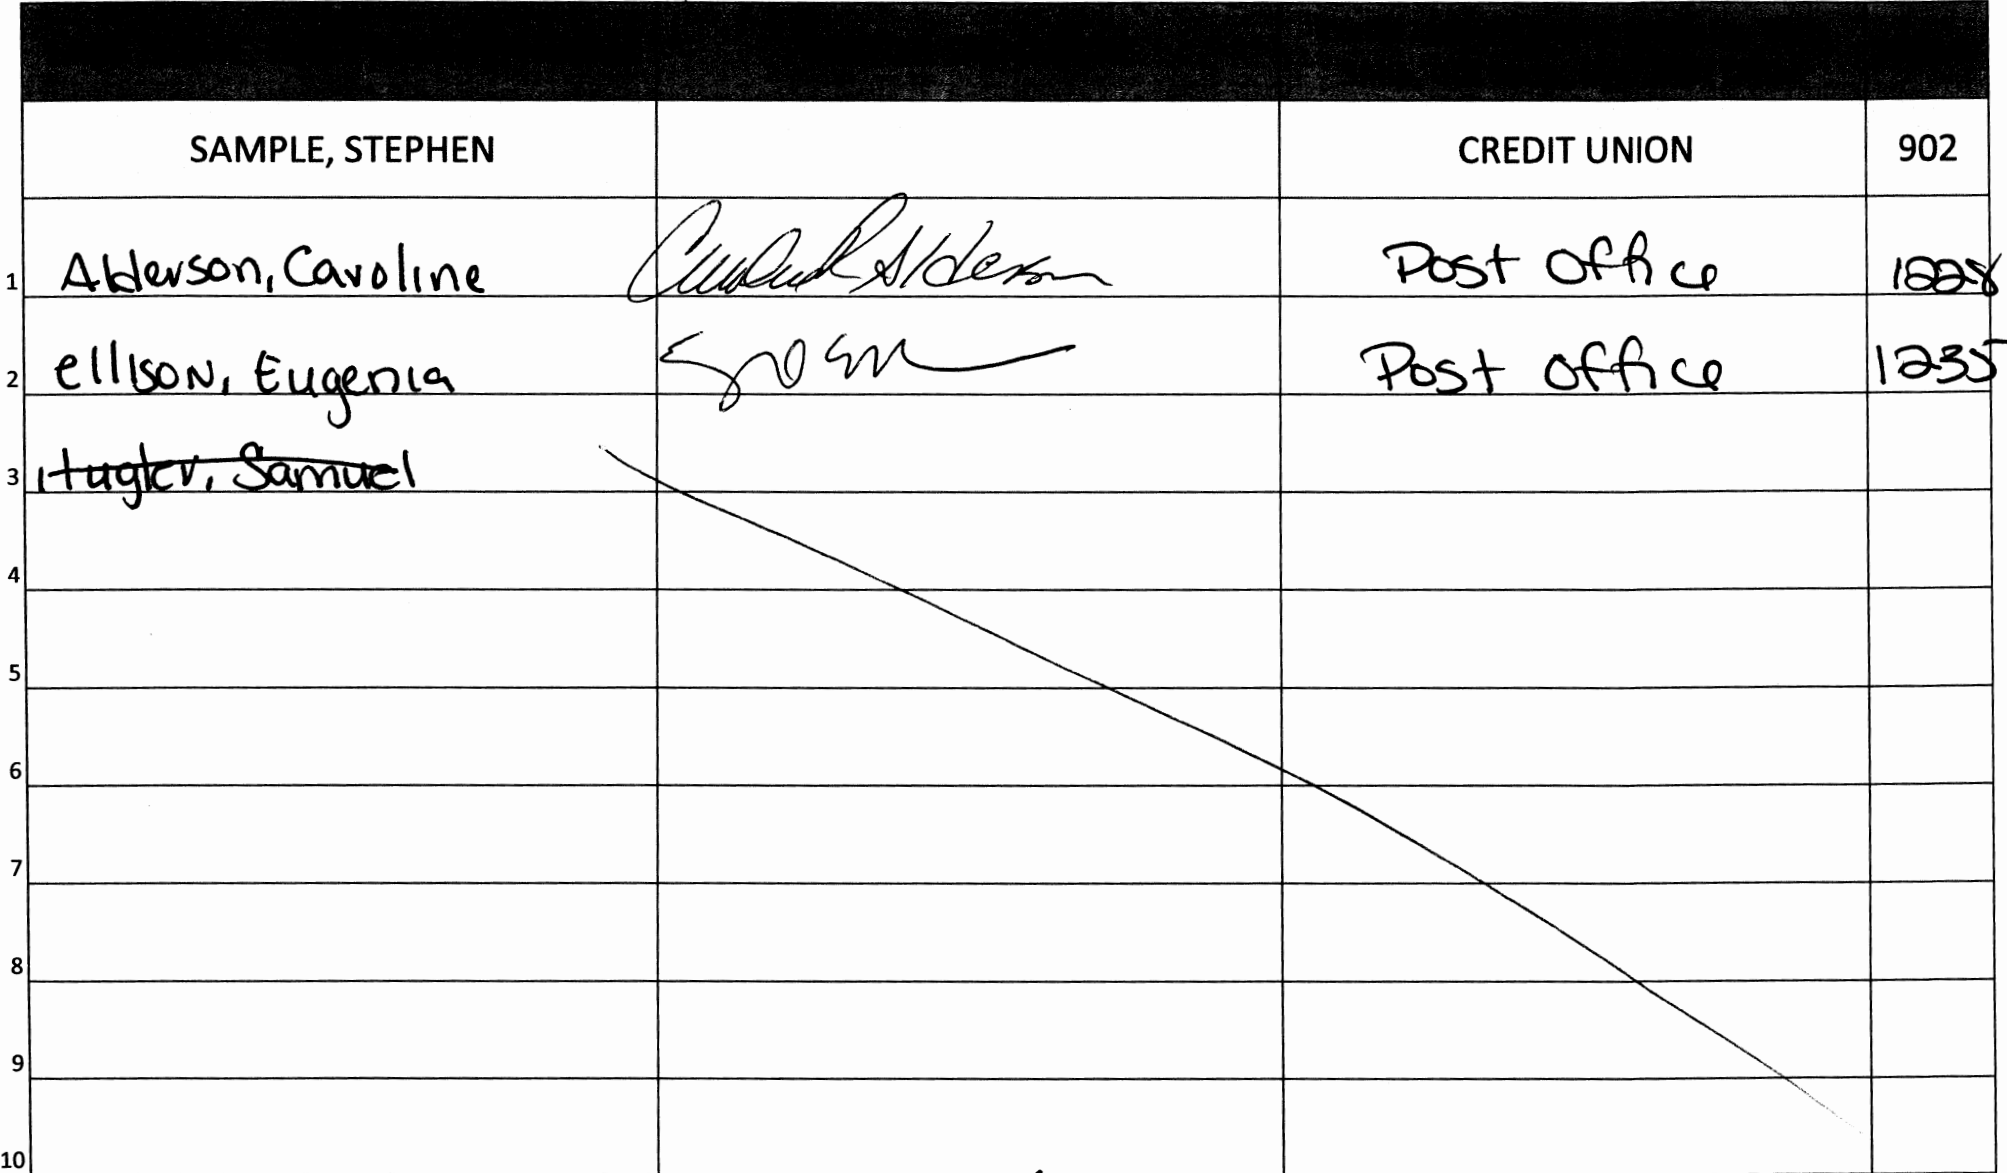 SAMPLE, STEPHEN CREDIT UNION 902
1 Alderson, Caroline Post Office 1228
2 Ellison, Eugenia Post Office 1235
3 Hugler, Samuel
4
5
6
7
8
9
10